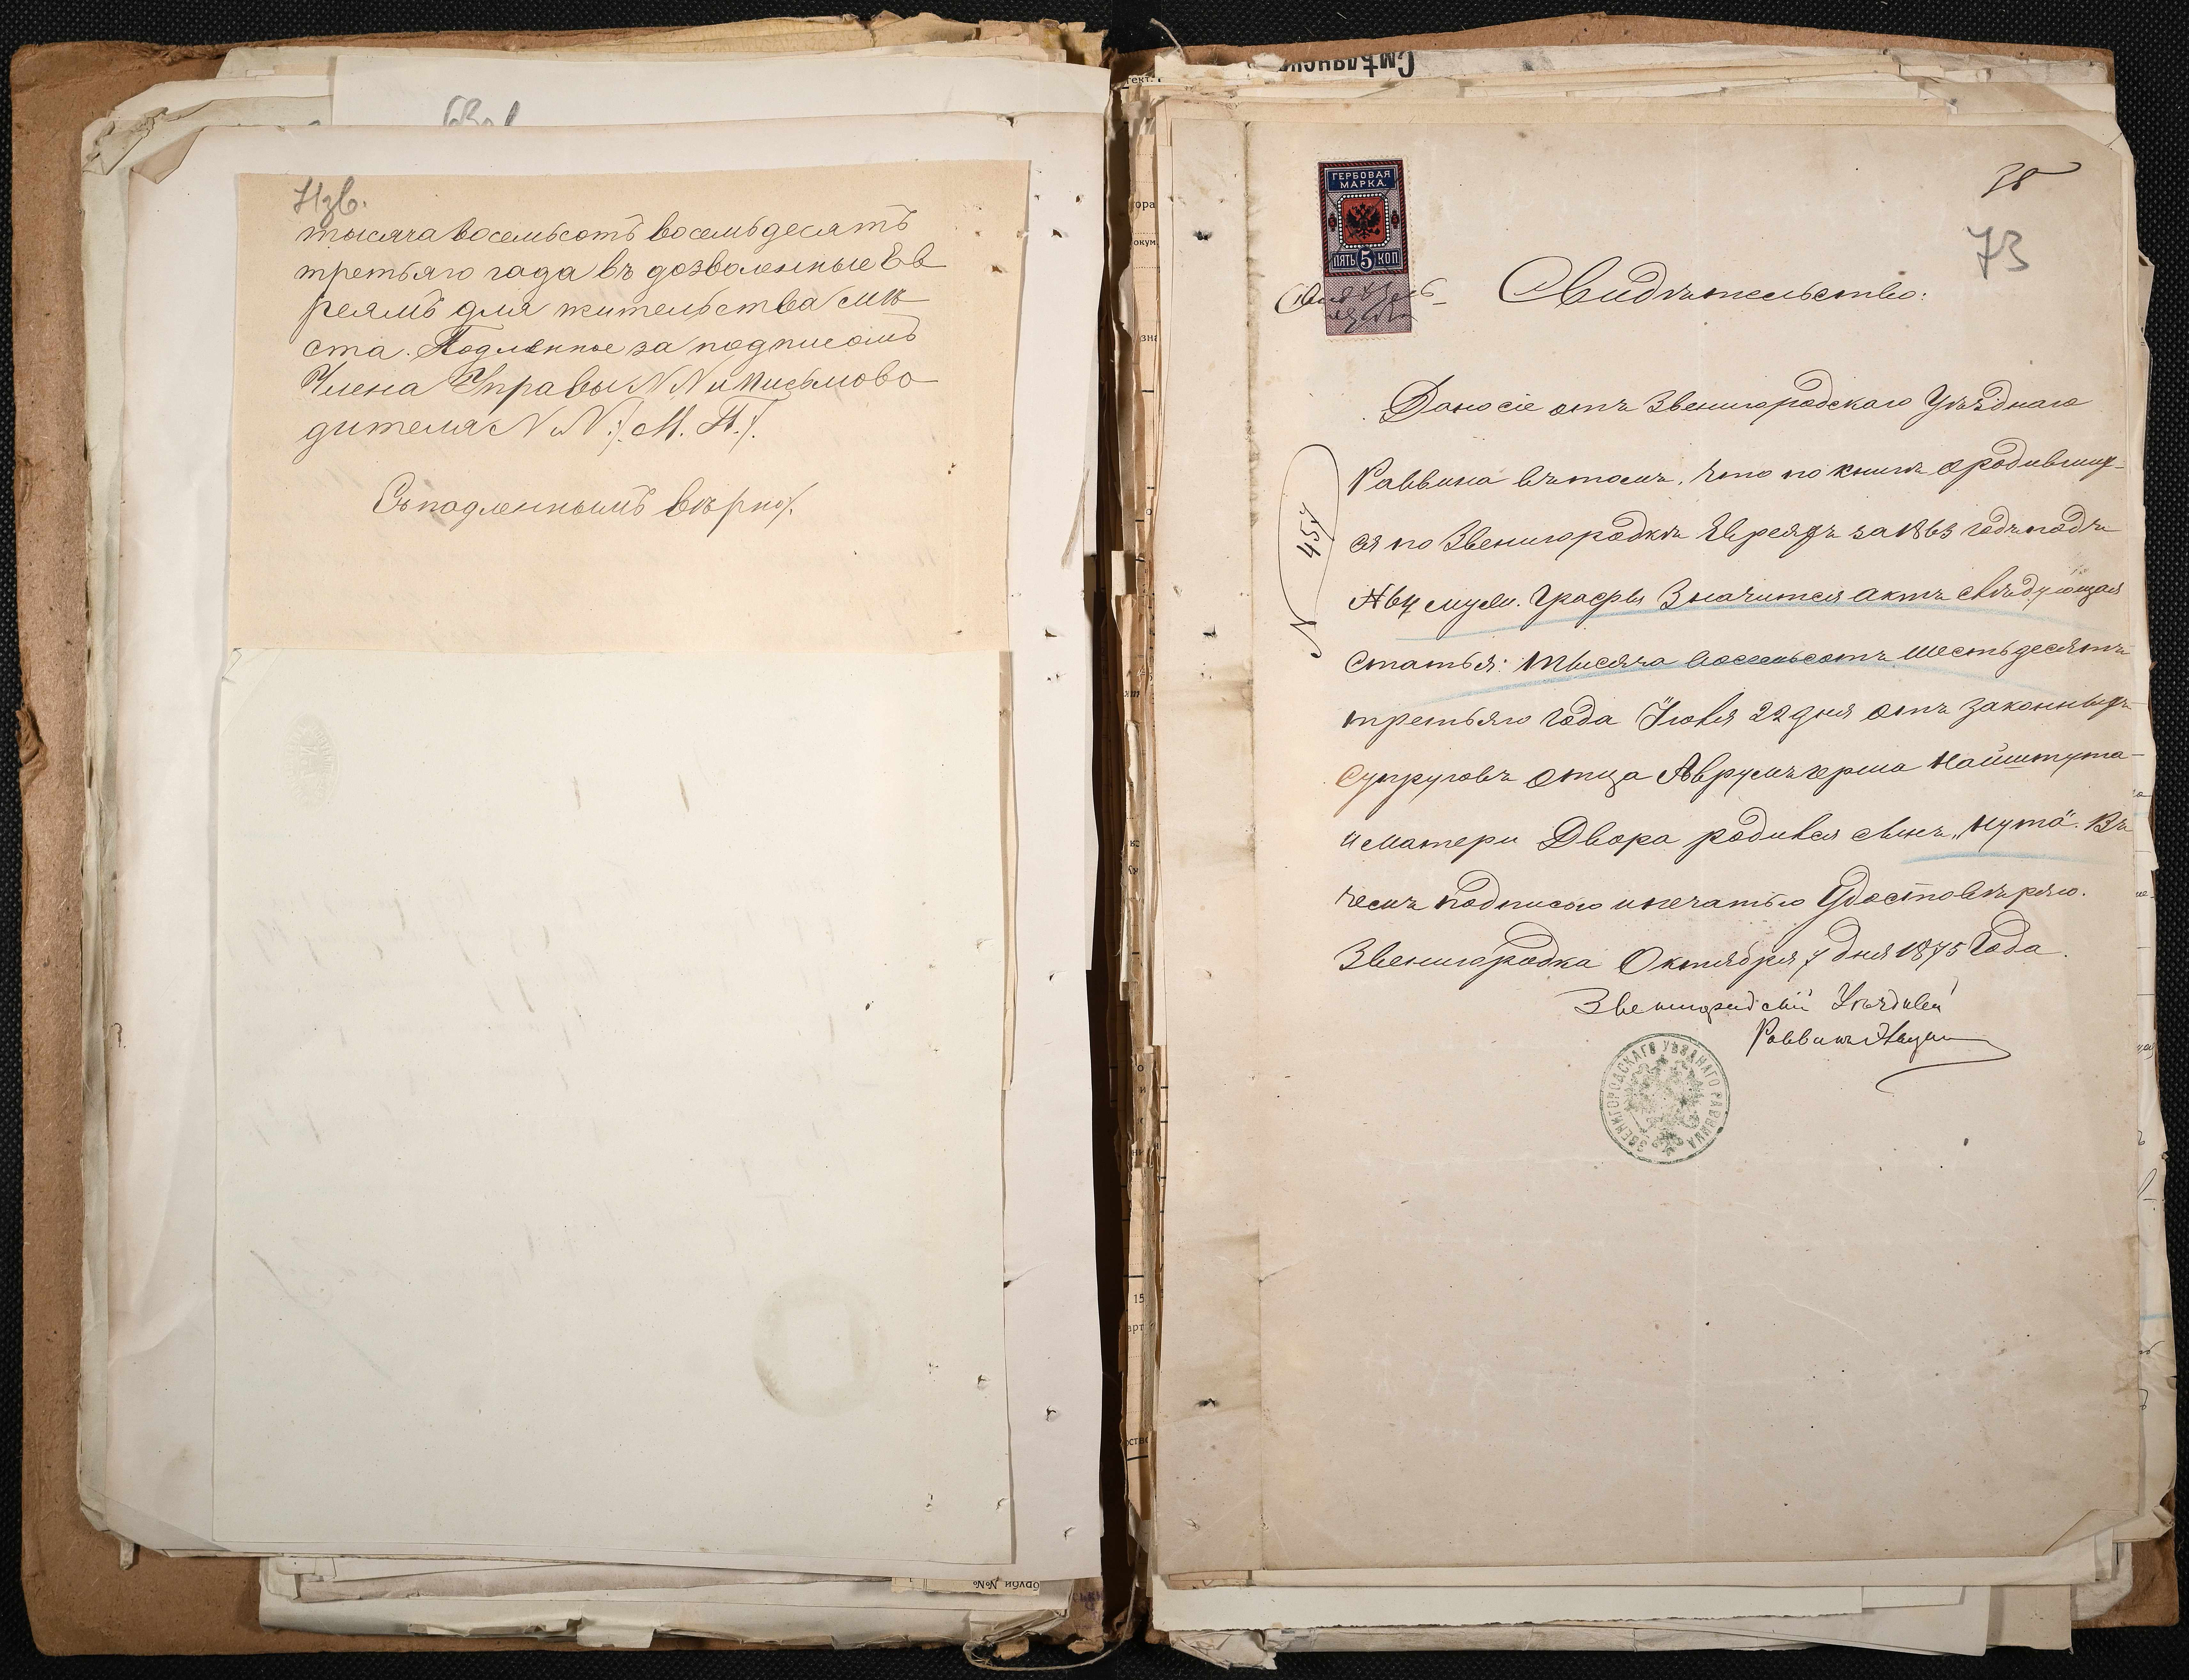 72 об.
тысяча восемьсотъ восемьдесятъ
третьяго года въ дозволенные Ев
реямъ для жительства мѣ
ста. Подлинное за подписомъ
Члена Управы N N и письмово
дителя N N. /. М. П. /.
Съ подленнымъ вѣрно/.
Смѣлянск
ГЕРБОВАЯ
МАРКА.
ПЯТЬ 5 КОП
38
73
Свидѣтельство:
Дано сіе отъ Звенигородскаго Уѣзднаго
Раввина въ томъ, что по книгѣ о родивших-
ся по Звенигородкѣ Евреяхъ за 1863 годъ подъ
N 64 муж. Графы Значится актъ слѣдующая
Статья: тысяча восемьсотъ шестьдесятъ
третьяго года Іюля 22 дня отъ законныхъ
Супруговъ отца Аврумъ герша Найштута
и матери Двора родился сынъ „Нута". Въ
чемъ подписью и печатью Удостовѣряю.
Звенигородка Октября 7 дня 1875 Года.
N 457
Звенигородскій Уѣздный
Раввинъ
ЗВЕНИГОРОДСКАГО УѢЗДНАГО РАВВИНА